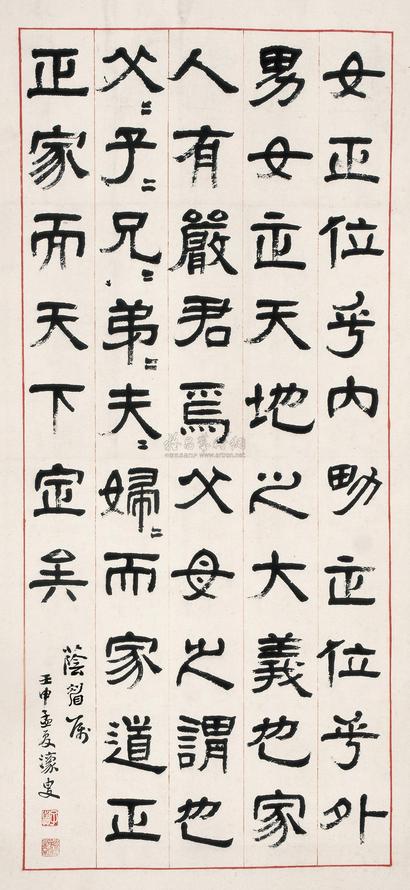 女正位乎内男正位乎外
男女正天地之大義也家
人有嚴君焉父母之謂也
父〻子〻兄〻弟〻夫〻婦〻而家道正
正家而天下定矣
蔭屬
壬申孟夏濠叟